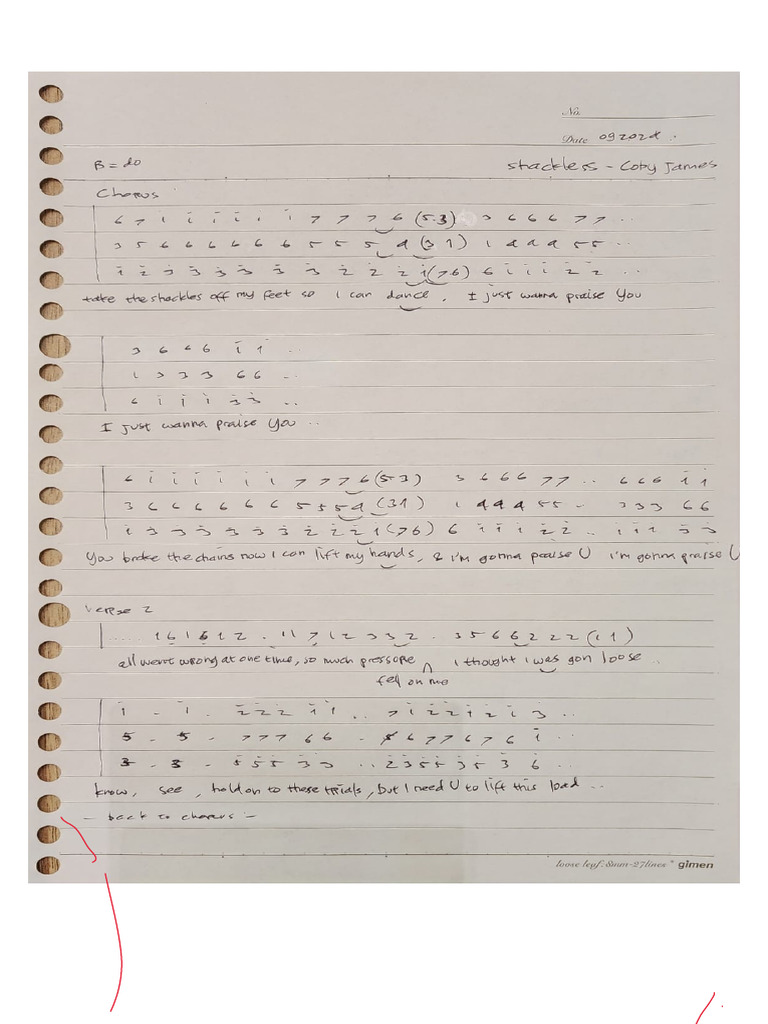 No.
Date 092024.
B = do
Shackless - Coby James
Chorus
6 7 1 i̇ i̇ i̇ i̇ i̇ 7 7 7 7 6 (5.3) 3 6 6 6 7 7 ..
3 5 6 6 6 6 6 6 5 5 5 5 4 (3 1) 1 4 4 4 5 5 ..
i̇ 2̇ 3̇ 3̇ 3̇ 3̇ 3̇ 3̇ 2̇ 2̇ 2̇ 2̇ i̇ (7 6) 6 i̇ i̇ i̇ 2̇ 2̇ ..
take the shackles off my feet so I can dance, I just wanna praise You
3 6 6 6 i̇ i̇ ..
1 3 3 3 6 6 ..
6 i̇ i̇ i̇ 3̇ 3̇ ..
I just wanna praise You ..
6 i̇ i̇ i̇ i̇ i̇ i̇ 7 7 7 6 (5 3) 3 6 6 6 7 7 .. 6 6 6 i̇ i̇
3 6 6 6 6 6 6 5 5 5 4 (3 1) 1 4 4 4 5 5 - 3 3 3 6 6
i̇ 3̇ 3̇ 3̇ 3̇ 3̇ 3̇ 2̇ 2̇ 2̇ i̇ (7 6) 6 i̇ i̇ i̇ 2̇ 2̇ .. i̇ i̇ i̇ 3̇ 3̇
You broke the chains now I can lift my hands, & I'm gonna praise U I'm gonna praise U
Verse 2
..... 1 6 1 6 1 2 . 1 1 7 1 2 3 3 2 . 3 5 6 6 2 2 2 (1 1)
all went wrong at one time, so much pressure fell on me I thought I was gon loose ..
i̇ - i̇ - 2̇ 2̇ 2̇ i̇ i̇ .. 7 i̇ 2̇ 2̇ i̇ 2̇ i̇ 3̇ ..
5 - 5 - 7 7 7 6 6 - 6 7 7 6 7 6 i̇ ..
3 - 3 - 5̇ 5̇ 5̇ 3̇ 3̇ .. 2̇ 3̇ 5̇ 5̇ 3̇ 5̇ 3̇ 6̇ ..
know, see, hold on to these trials, but I need U to lift this load ..
- back to chorus -
loose leaf: 8mm-27lines * gimen